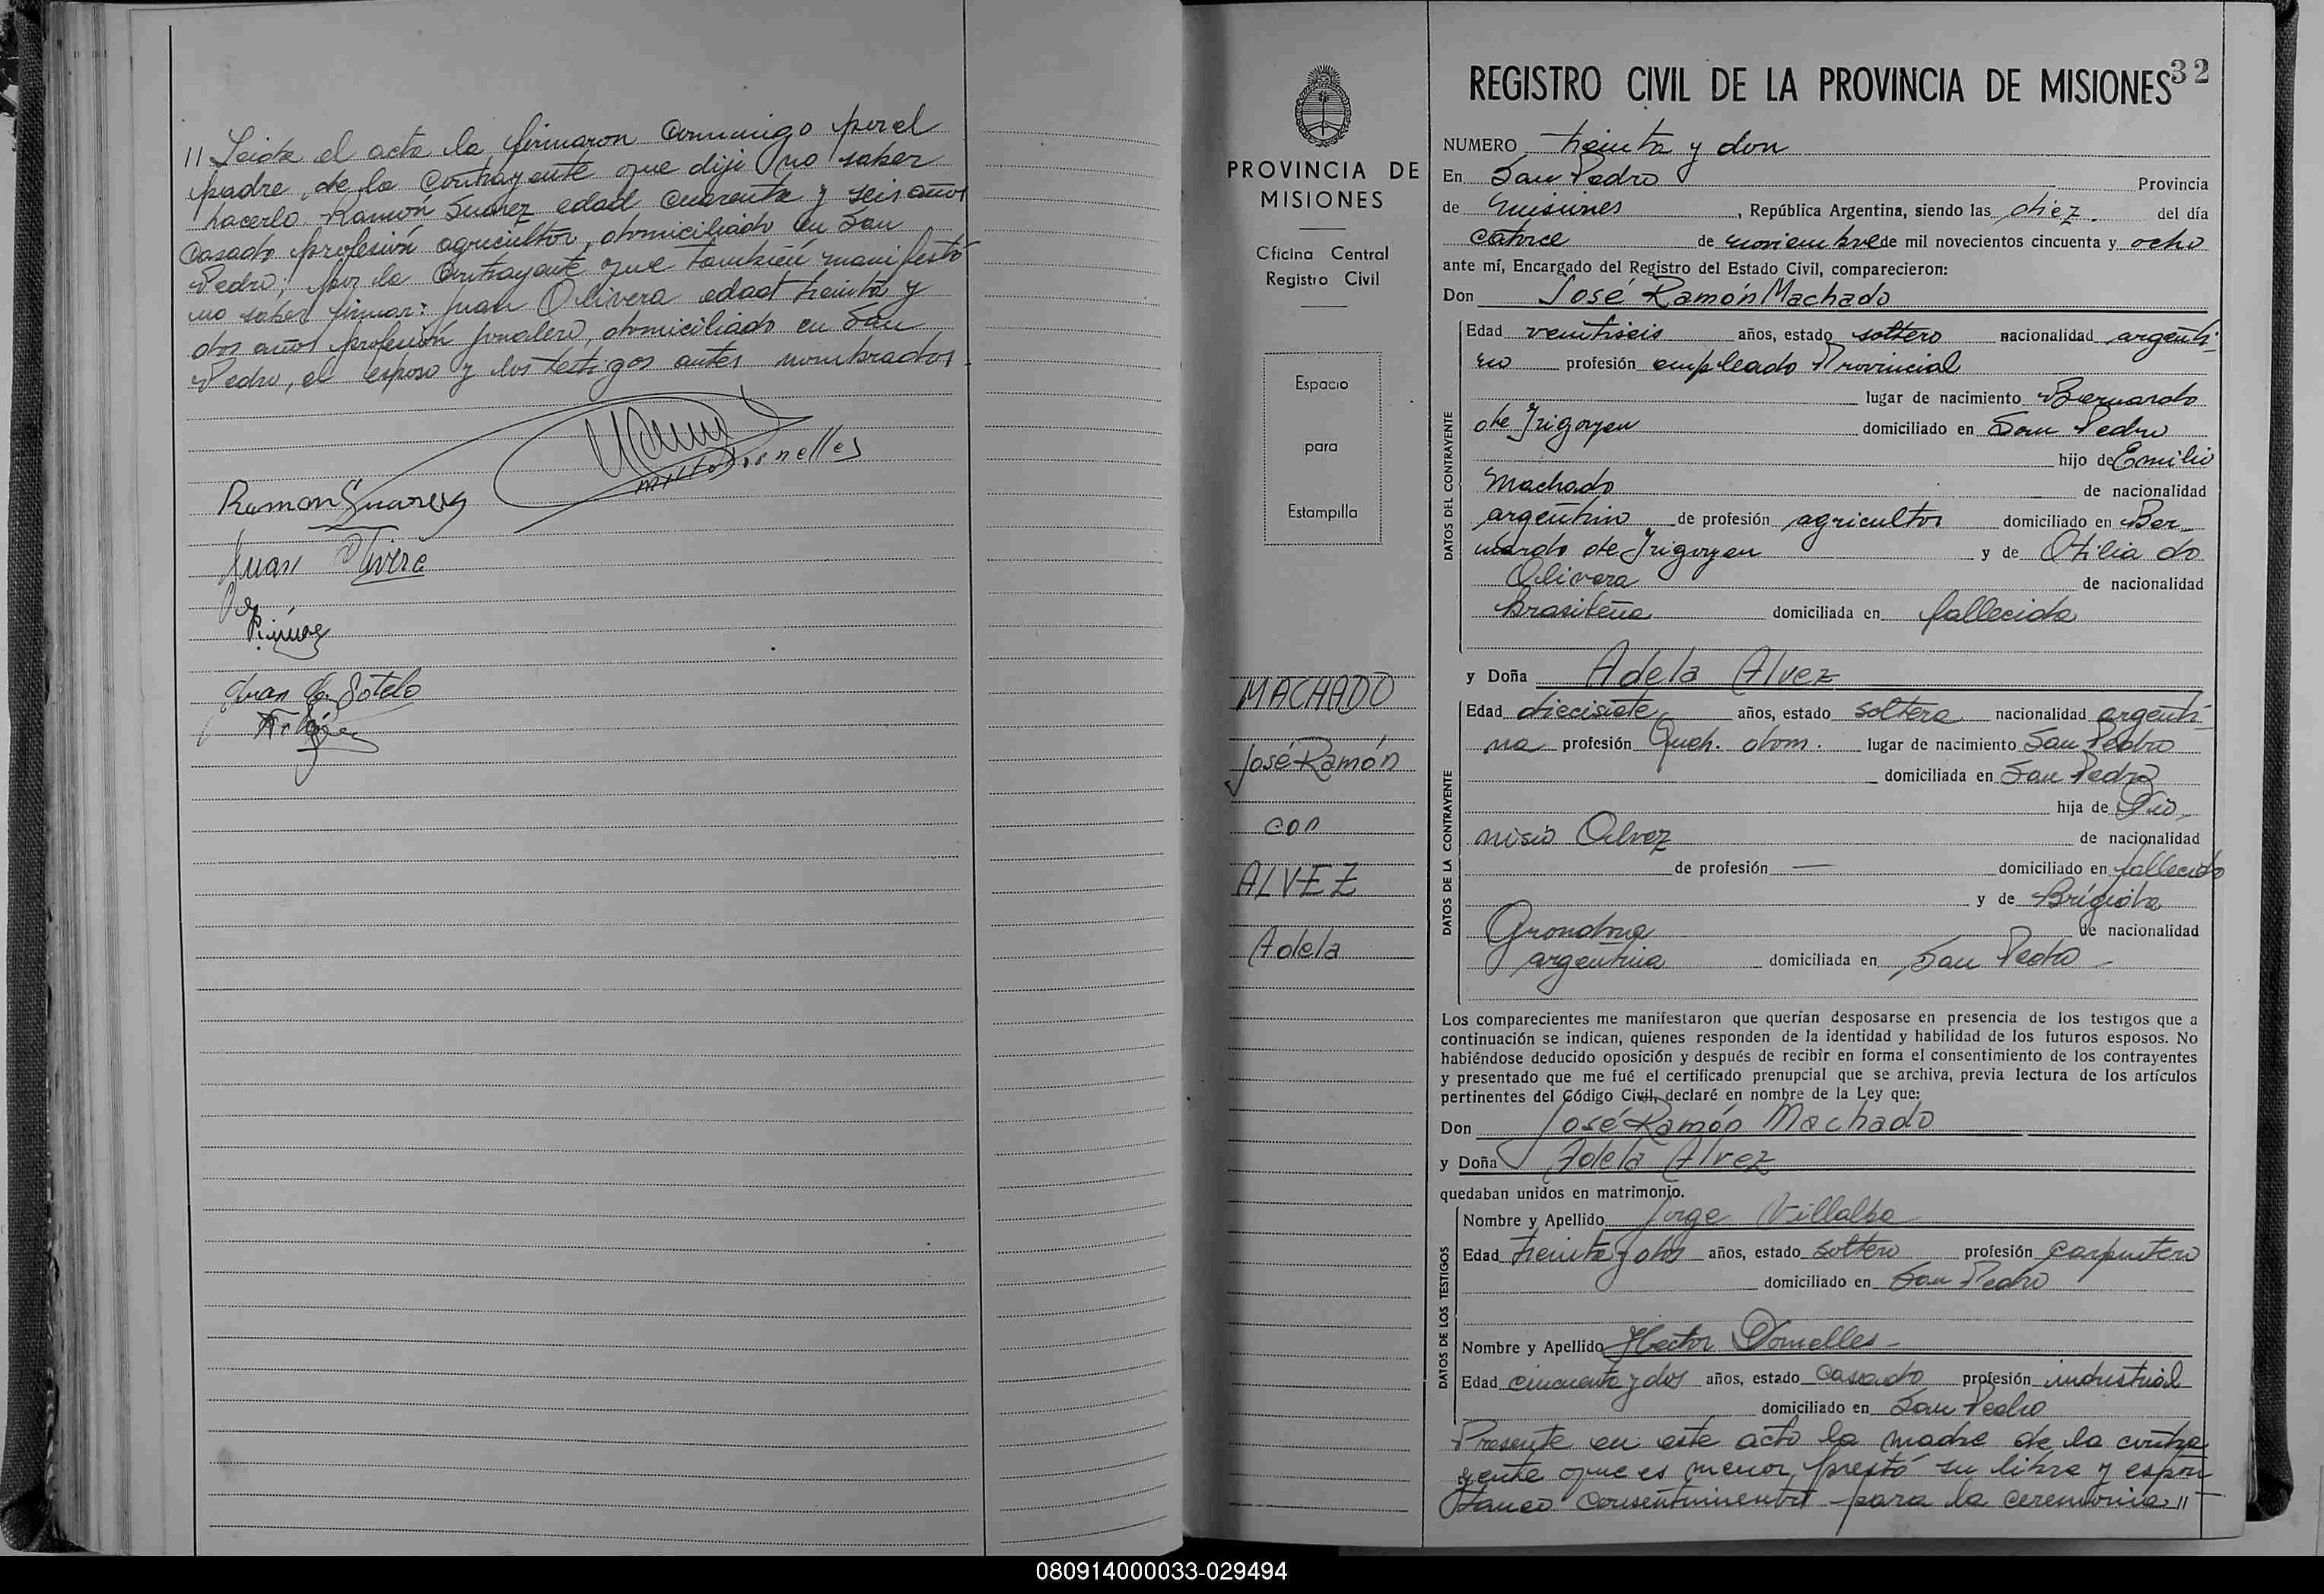 // Leida el acta la firmaron conmigo por el
padre de la contrayente que dijo no saber
hacerlo Ramón Suarez edad cuarenta y seis años
casado profesión agricultor, domiciliado en San
Pedro; por la contrayente que también manifestó
no saber firmar: Juan Olivera edad treinta y
dos años profesión jornalero, domiciliado en San
Pedro, el esposo y los testigos antes nombrados.
Ramon Suarez
Juan
Juan Sotelo
PROVINCIA DE
MISIONES
Oficina Central
Registro Civil
Espacio
para
Estampilla
MACHADO
José Ramón
con
ALVEZ
Adela
REGISTRO CIVIL DE LA PROVINCIA DE MISIONES 32
NUMERO treinta y dos
En San Pedro Provincia
de Misiones, República Argentina, siendo las diez del día
catorce de noviembre de mil novecientos cincuenta y ocho
ante mí, Encargado del Registro del Estado Civil, comparecieron:
Don José Ramón Machado
DATOS DEL CONTRAYENTE
Edad veintiseis años, estado soltero nacionalidad argenti-
no profesión empleado Provincial
lugar de nacimiento Bernardo
de Irigoyen domiciliado en San Pedro
hijo de Emilio
Machado de nacionalidad
argentino de profesión agricultor domiciliado en Ber-
nardo de Irigoyen y de Otilia do
Olivera de nacionalidad
brasileña domiciliada en fallecida
y Doña Adela Alvez
DATOS DE LA CONTRAYENTE
Edad diecisiete años, estado soltera nacionalidad argenti-
na profesión Queh. dom. lugar de nacimiento San Pedro
domiciliada en San Pedro
hija de Dio-
nisio Alvez de nacionalidad
de profesión — domiciliado en fallecido
y de Brígida
Grondona de nacionalidad
argentina domiciliada en San Pedro -
Los comparecientes me manifestaron que querían desposarse en presencia de los testigos que a
continuación se indican, quienes responden de la identidad y habilidad de los futuros esposos. No
habiéndose deducido oposición y después de recibir en forma el consentimiento de los contrayentes
y presentado que me fué el certificado prenupcial que se archiva, previa lectura de los artículos
pertinentes del Código Civil, declaré en nombre de la Ley que:
Don José Ramón Machado
y Doña Adela Alvez
quedaban unidos en matrimonio.
DATOS DE LOS TESTIGOS
Nombre y Apellido Jorge Villalba
Edad treinta y dos años, estado soltero profesión carpintero
domiciliado en San Pedro
Nombre y Apellido Hector Dornelles -
Edad cincuenta y dos años, estado casado profesión industrial
domiciliado en San Pedro
Presente en este acto la madre de la contra
yente que es menor, prestó su libre y espon
taneo consentimiento para la ceremonia //
080914000033-029494